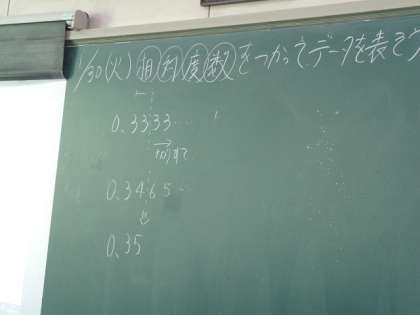 1/30(火) 相対度数をつかってデータを表そう
0.3333…
切りすて
0.3465…
0.35